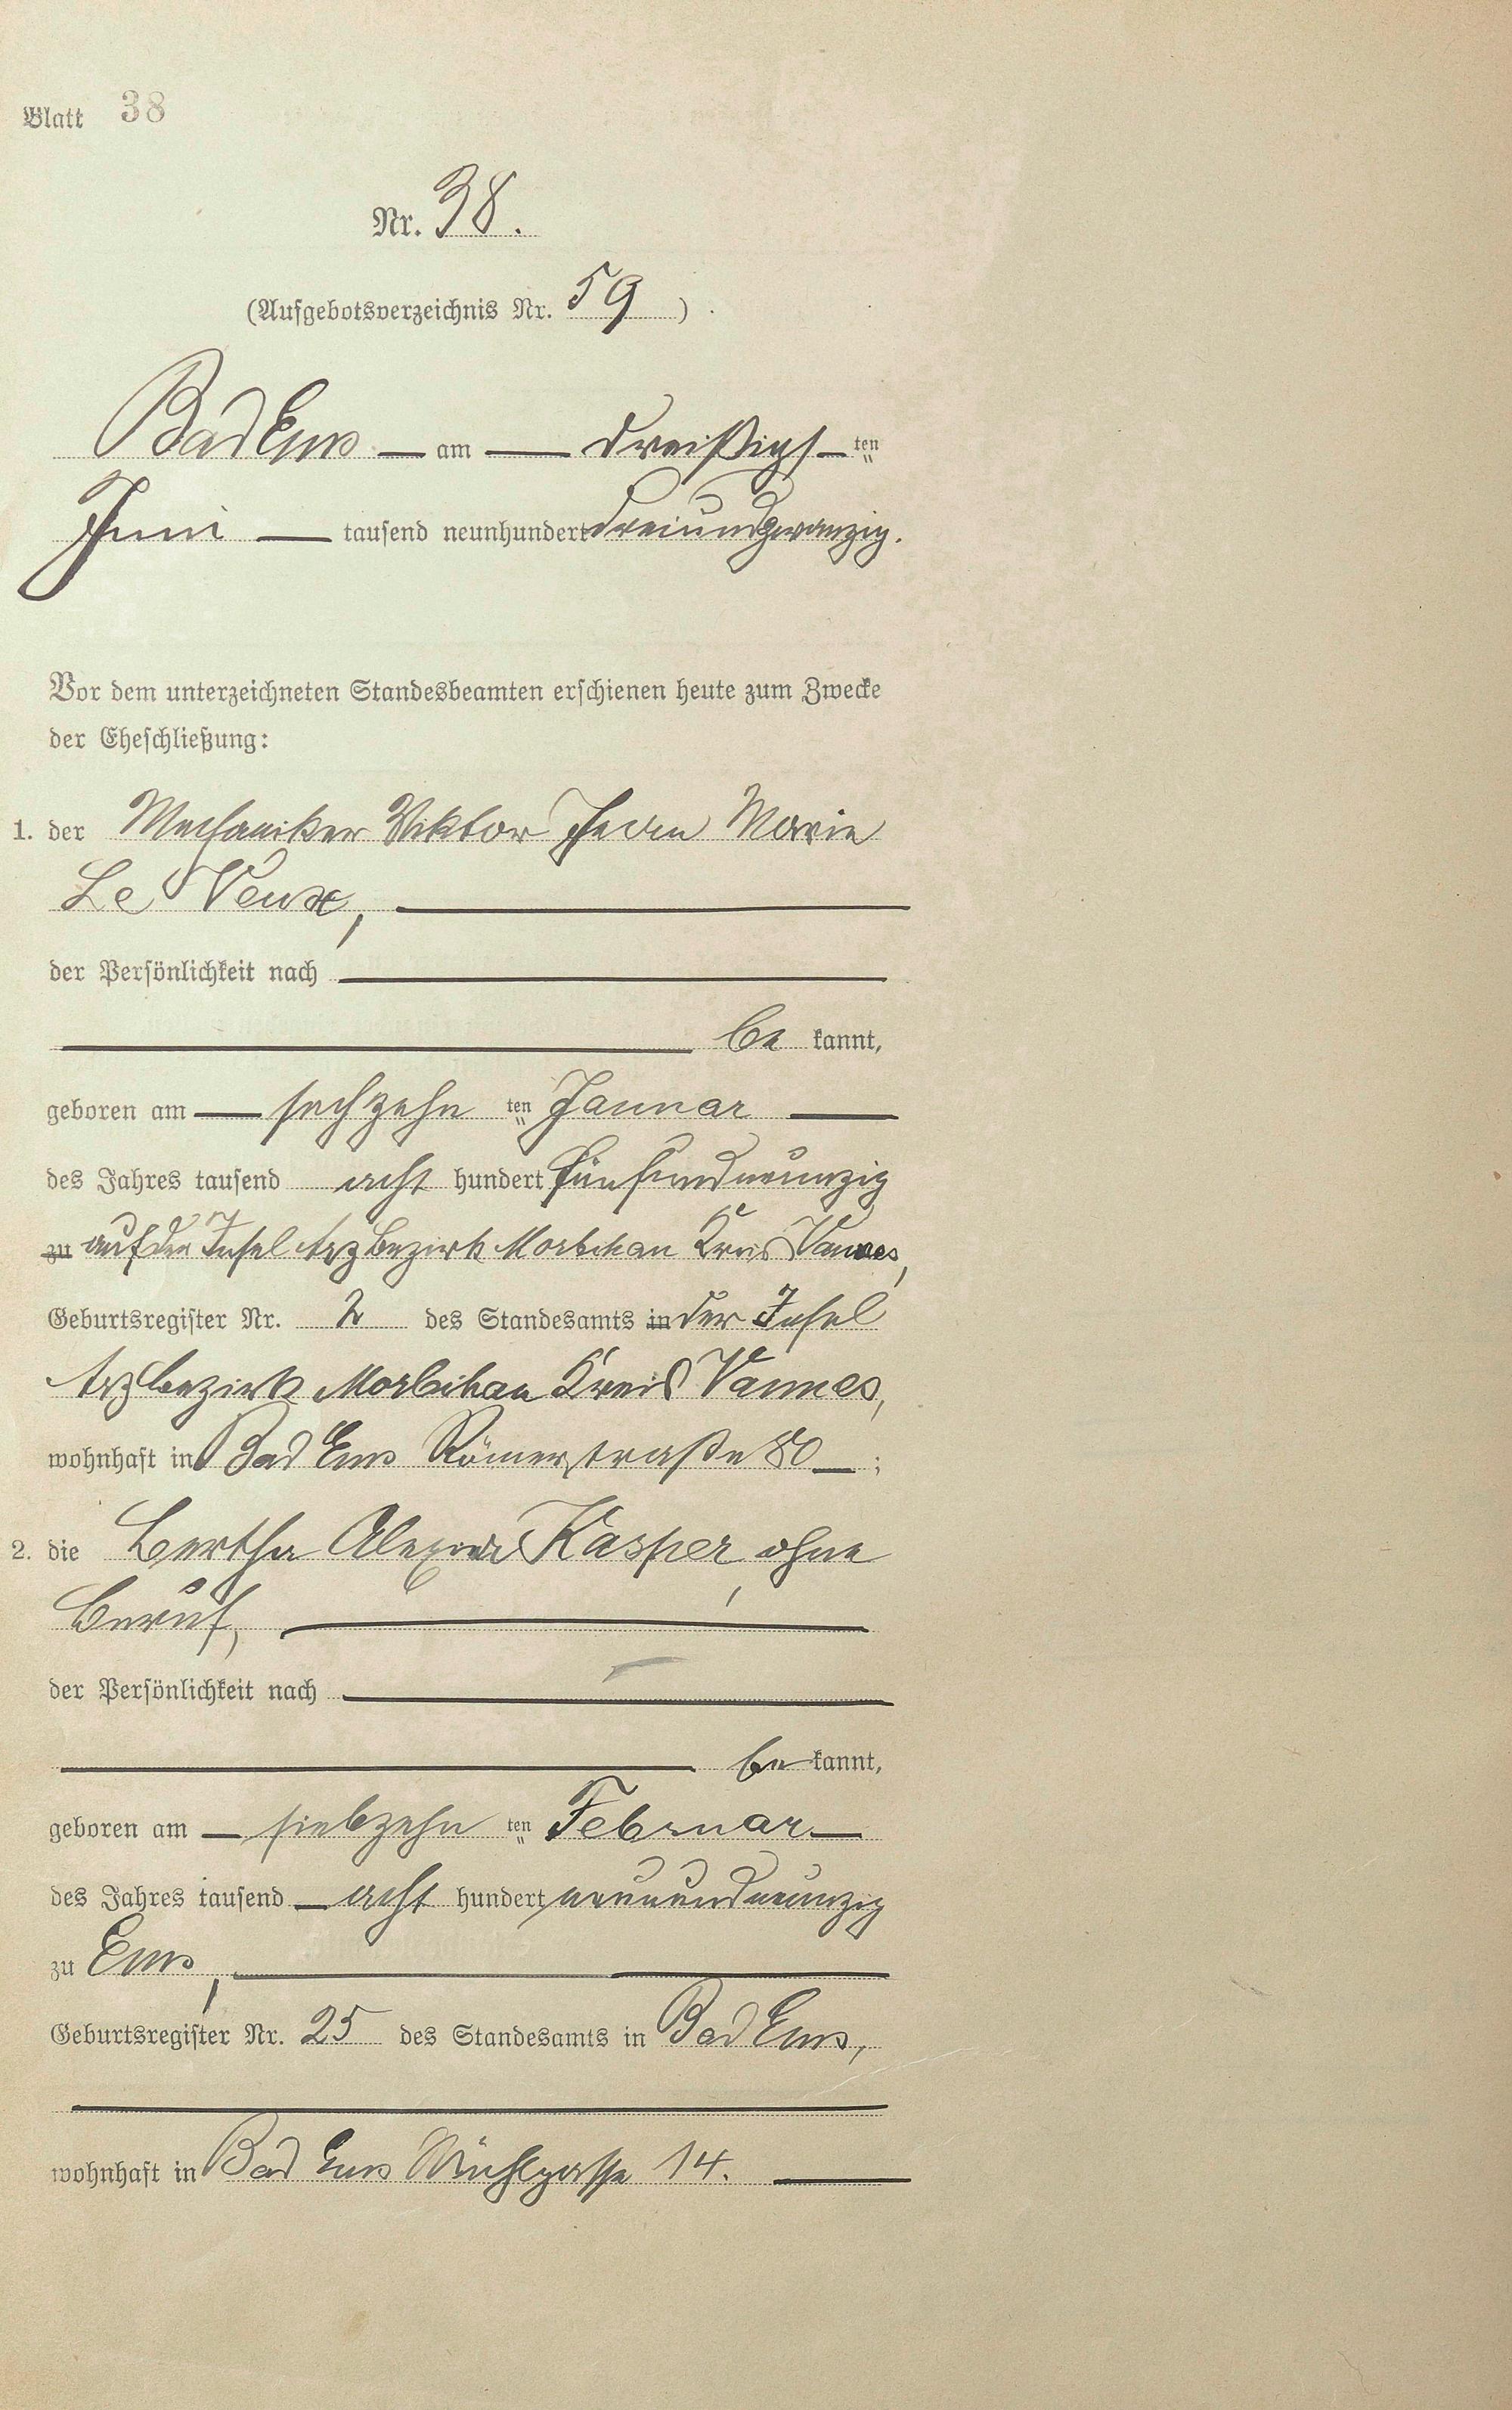 Blatt 38
Nr. 38.
(Aufgebotsverzeichnis Nr. 59)
Bad Ems — am — dreißigs — ten
Juni — tausend neunhundert dreiundzwanzig.
Vor dem unterzeichneten Standesbeamten erschienen heute zum Zwecke
der Eheschließung:
1. der Mechaniker Viktor Jean Marie
Le Veux,
der Persönlichkeit nach
be kannt,
geboren am — sechzehn ten Januar —
des Jahres tausend acht hundert fünfundneunzig
zu auf der Insel Arz Bezirk Morbihan Kreis Vannes,
Geburtsregister Nr. 2 des Standesamts in der Insel
Arz Bezirk Morbihan Kreis Vannes,
wohnhaft in Bad Ems Römerstraße 80 — ;
2. die Bertha Kasper, ohne
Beruf,
der Persönlichkeit nach
be kannt,
geboren am — siebzehn ten Februar —
des Jahres tausend — acht hundert neunundneunzig
zu Ems,
Geburtsregister Nr. 25 des Standesamts in Bad Ems,
wohnhaft in Bad Ems 14. —